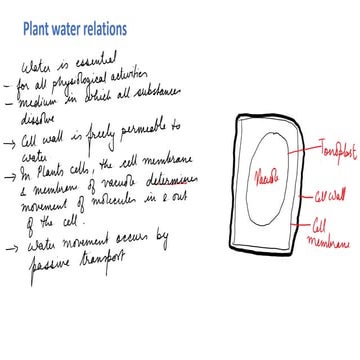 Plant water relations
Water is essential
- for all physiological activities
- medium in which all substances
dissolve
→ Cell wall is freely permeable to
water
→ In Plants cells, the cell membrane
& membrane of vacuole determines
movement of molecules in & out
of the cell.
→ Water movement occurs by
passive transport
Tonoplast
Vacuole
Cell wall
Cell
membrane